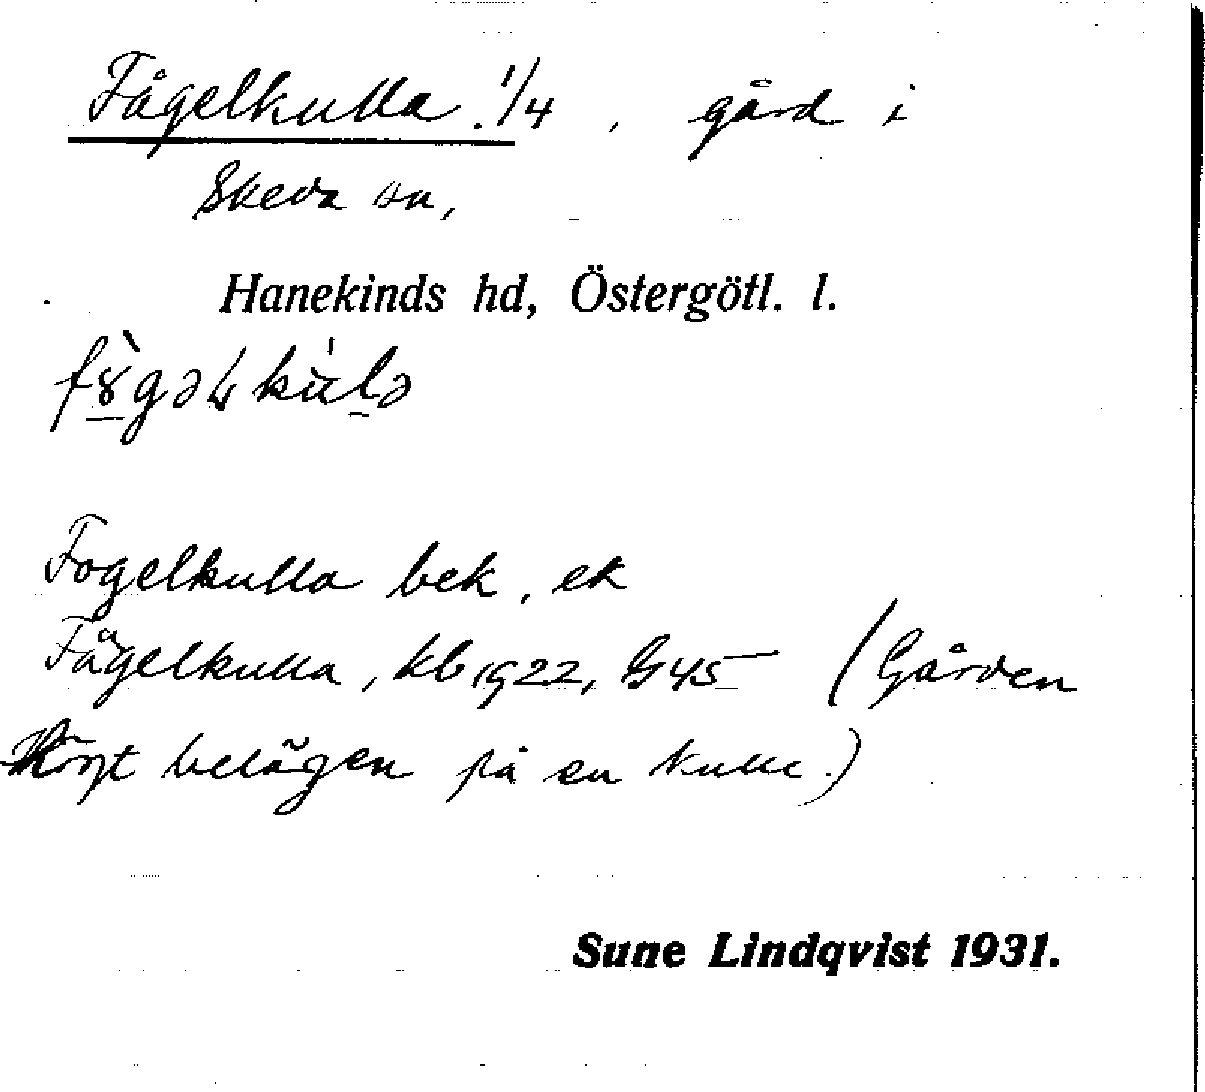 Fågelkulla. 1/4, gård i
Skeda sn,
Hanekinds hd, Östergötl. l.
Fogelkulla bek, ek
Fågelkulla, kb 1922, G 45 (Gården
högt belägen på en kulle.)
Sune Lindqvist 1931.